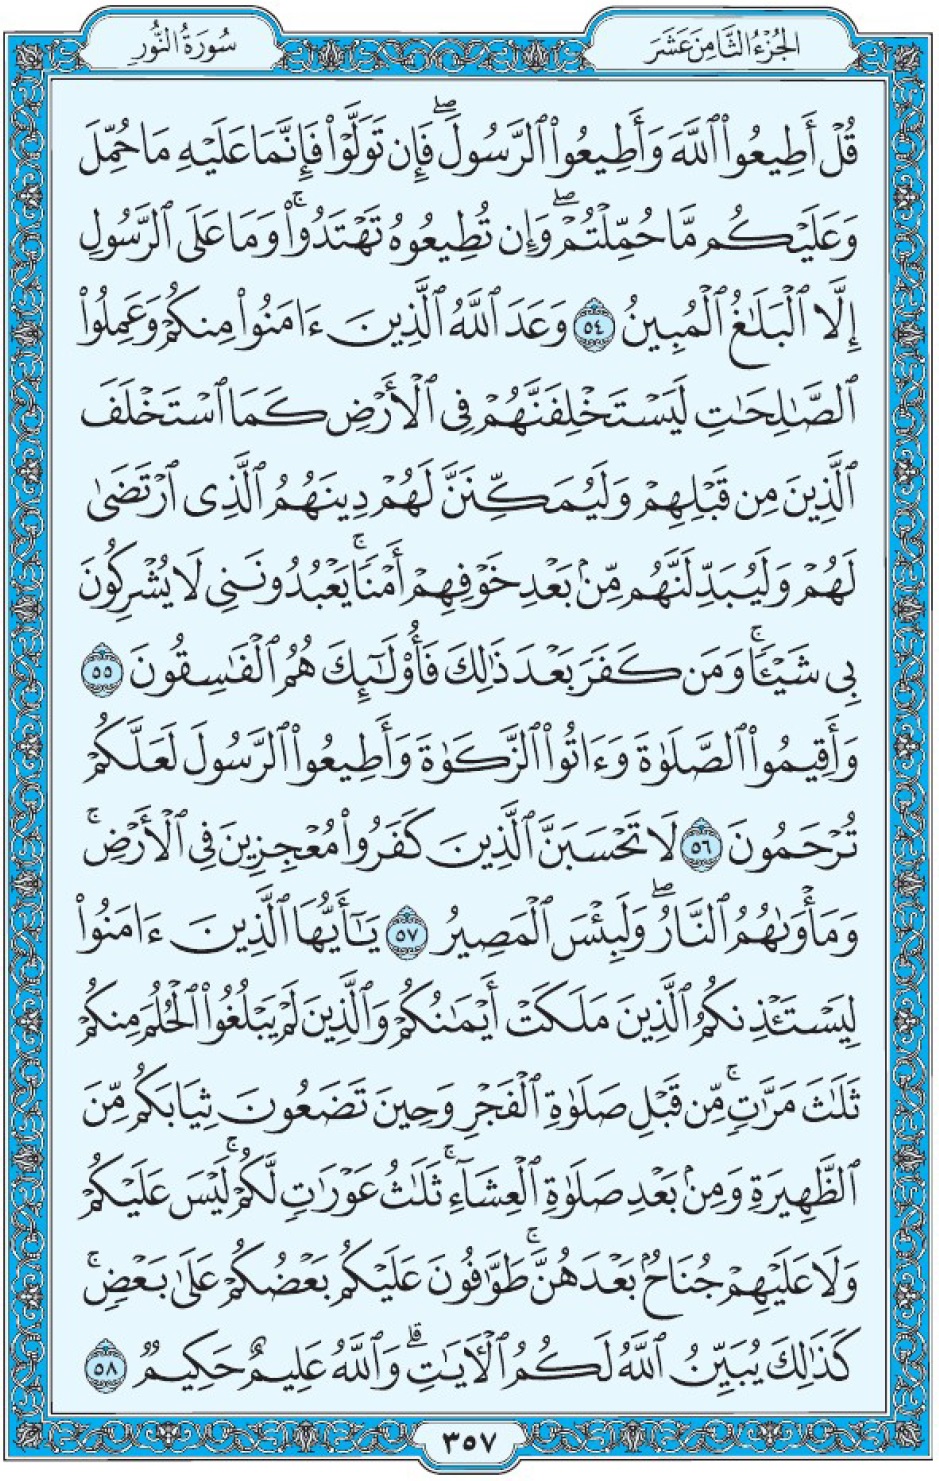 سُورَةُ النُّور
الجُزْءُ الثَّامِنَ عَشَرَ
قُلْ أَطِيعُوا۟ ٱللَّهَ وَأَطِيعُوا۟ ٱلرَّسُولَ ۖ فَإِن تَوَلَّوْا۟ فَإِنَّمَا عَلَيْهِ مَا حُمِّلَ
وَعَلَيْكُم مَّا حُمِّلْتُمْ ۖ وَإِن تُطِيعُوهُ تَهْتَدُوا۟ ۚ وَمَا عَلَى ٱلرَّسُولِ
إِلَّا ٱلْبَلَٰغُ ٱلْمُبِينُ ٥٤ وَعَدَ ٱللَّهُ ٱلَّذِينَ ءَامَنُوا۟ مِنكُمْ وَعَمِلُوا۟
ٱلصَّٰلِحَٰتِ لَيَسْتَخْلِفَنَّهُمْ فِى ٱلْأَرْضِ كَمَا ٱسْتَخْلَفَ
ٱلَّذِينَ مِن قَبْلِهِمْ وَلَيُمَكِّنَنَّ لَهُمْ دِينَهُمُ ٱلَّذِى ٱرْتَضَىٰ
لَهُمْ وَلَيُبَدِّلَنَّهُم مِّنۢ بَعْدِ خَوْفِهِمْ أَمْنًا ۚ يَعْبُدُونَنِى لَا يُشْرِكُونَ
بِى شَيْـًٔا ۚ وَمَن كَفَرَ بَعْدَ ذَٰلِكَ فَأُو۟لَٰٓئِكَ هُمُ ٱلْفَٰسِقُونَ ٥٥
وَأَقِيمُوا۟ ٱلصَّلَوٰةَ وَءَاتُوا۟ ٱلزَّكَوٰةَ وَأَطِيعُوا۟ ٱلرَّسُولَ لَعَلَّكُمْ
تُرْحَمُونَ ٥٦ لَا تَحْسَبَنَّ ٱلَّذِينَ كَفَرُوا۟ مُعْجِزِينَ فِى ٱلْأَرْضِ ۚ
وَمَأْوَىٰهُمُ ٱلنَّارُ ۖ وَلَبِئْسَ ٱلْمَصِيرُ ٥٧ يَٰٓأَيُّهَا ٱلَّذِينَ ءَامَنُوا۟
لِيَسْتَـْٔذِنكُمُ ٱلَّذِينَ مَلَكَتْ أَيْمَٰنُكُمْ وَٱلَّذِينَ لَمْ يَبْلُغُوا۟ ٱلْحُلُمَ مِنكُمْ
ثَلَٰثَ مَرَّٰتٍ ۚ مِّن قَبْلِ صَلَوٰةِ ٱلْفَجْرِ وَحِينَ تَضَعُونَ ثِيَابَكُم مِّنَ
ٱلظَّهِيرَةِ وَمِنۢ بَعْدِ صَلَوٰةِ ٱلْعِشَآءِ ۚ ثَلَٰثُ عَوْرَٰتٍ لَّكُمْ ۚ لَيْسَ عَلَيْكُمْ
وَلَا عَلَيْهِمْ جُنَاحٌۢ بَعْدَهُنَّ ۚ طَوَّٰفُونَ عَلَيْكُم بَعْضُكُمْ عَلَىٰ بَعْضٍ ۚ
كَذَٰلِكَ يُبَيِّنُ ٱللَّهُ لَكُمُ ٱلْـَٔايَٰتِ ۗ وَٱللَّهُ عَلِيمٌ حَكِيمٌ ٥٨
٣٥٧